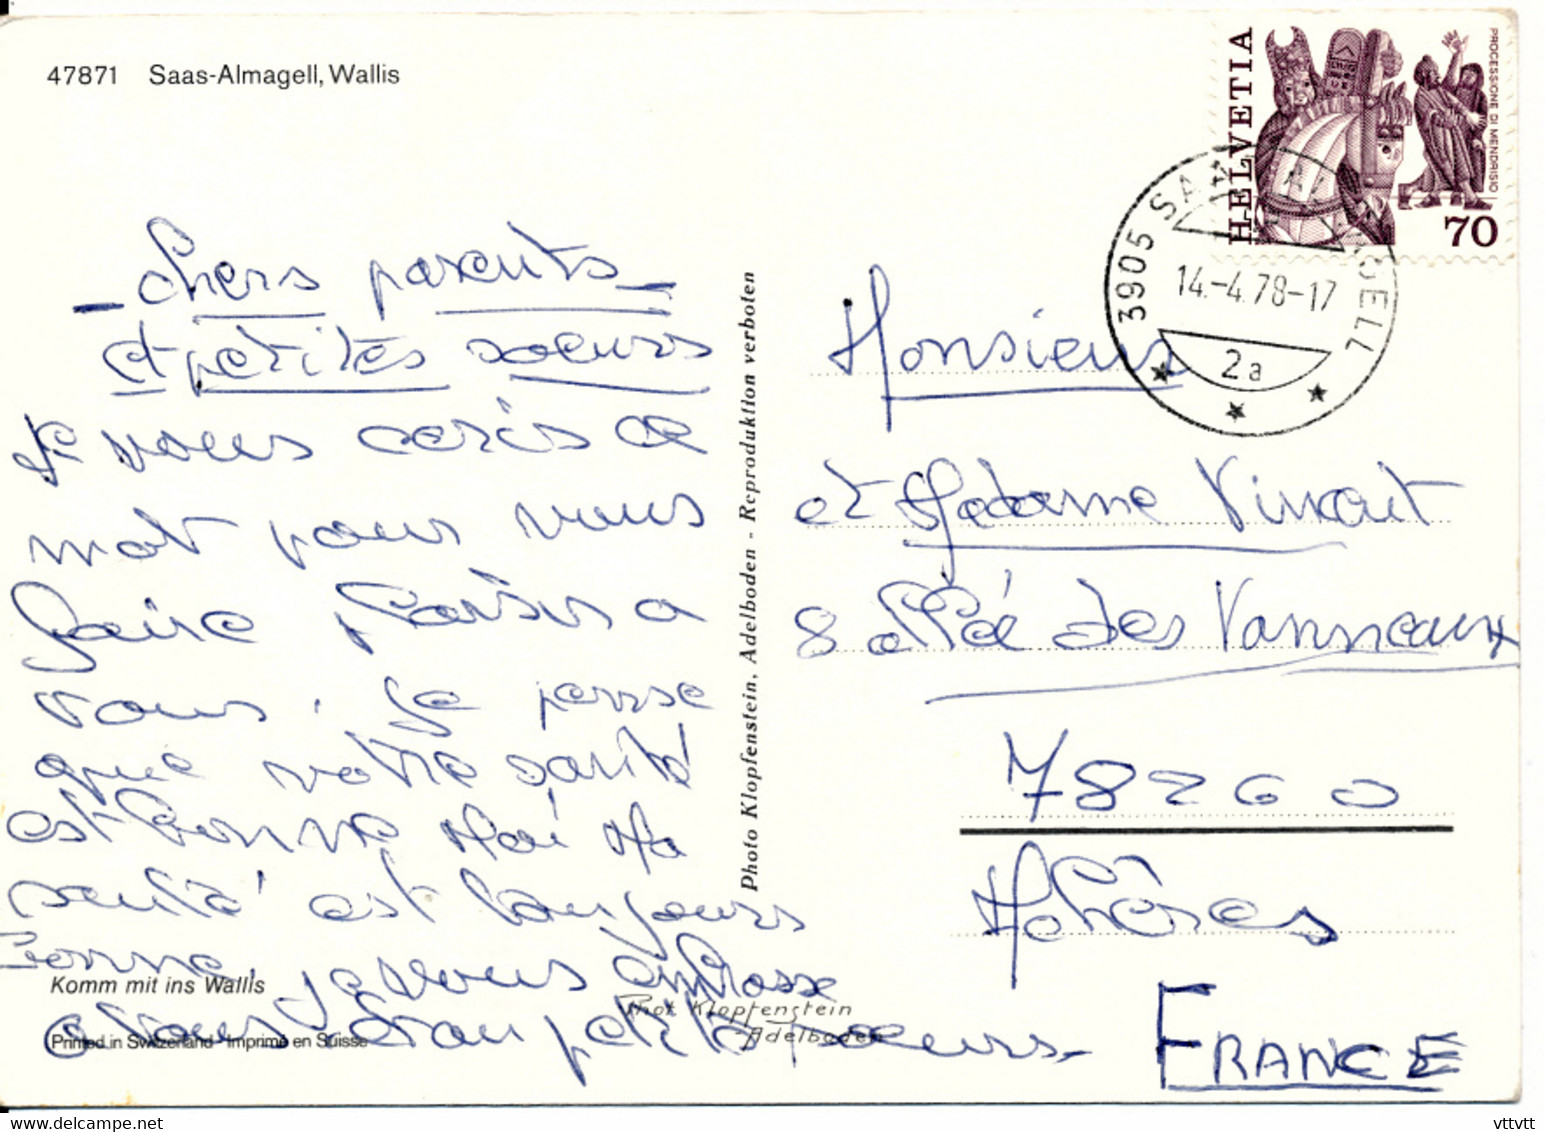 47871 Saas-Almagell, Wallis
HELVETIA
PROCESSIONE DI MENDRISIO
70
3905 SAAS-ALMAGELL
14.-4.78-17
2a
- Chers parents -
et petites soeurs
Je vous ecris ce
mot pour vous
faire plaisir a
vous. Je pense
que votre santé
est bonne Moi Ma
santé est toujours
bonne, je vous embrasse
a vous petites soeurs.
Komm mit ins Wallis
Printed in Switzerland - Imprimé en Suisse
Photo Klopfenstein, Adelboden - Reproduktion verboten
Phot Klopfenstein
Adelboden
Monsieur
et Madame Vincent
8 allée des Vanneaux
78260
Achères
FRANCE
vttvtt